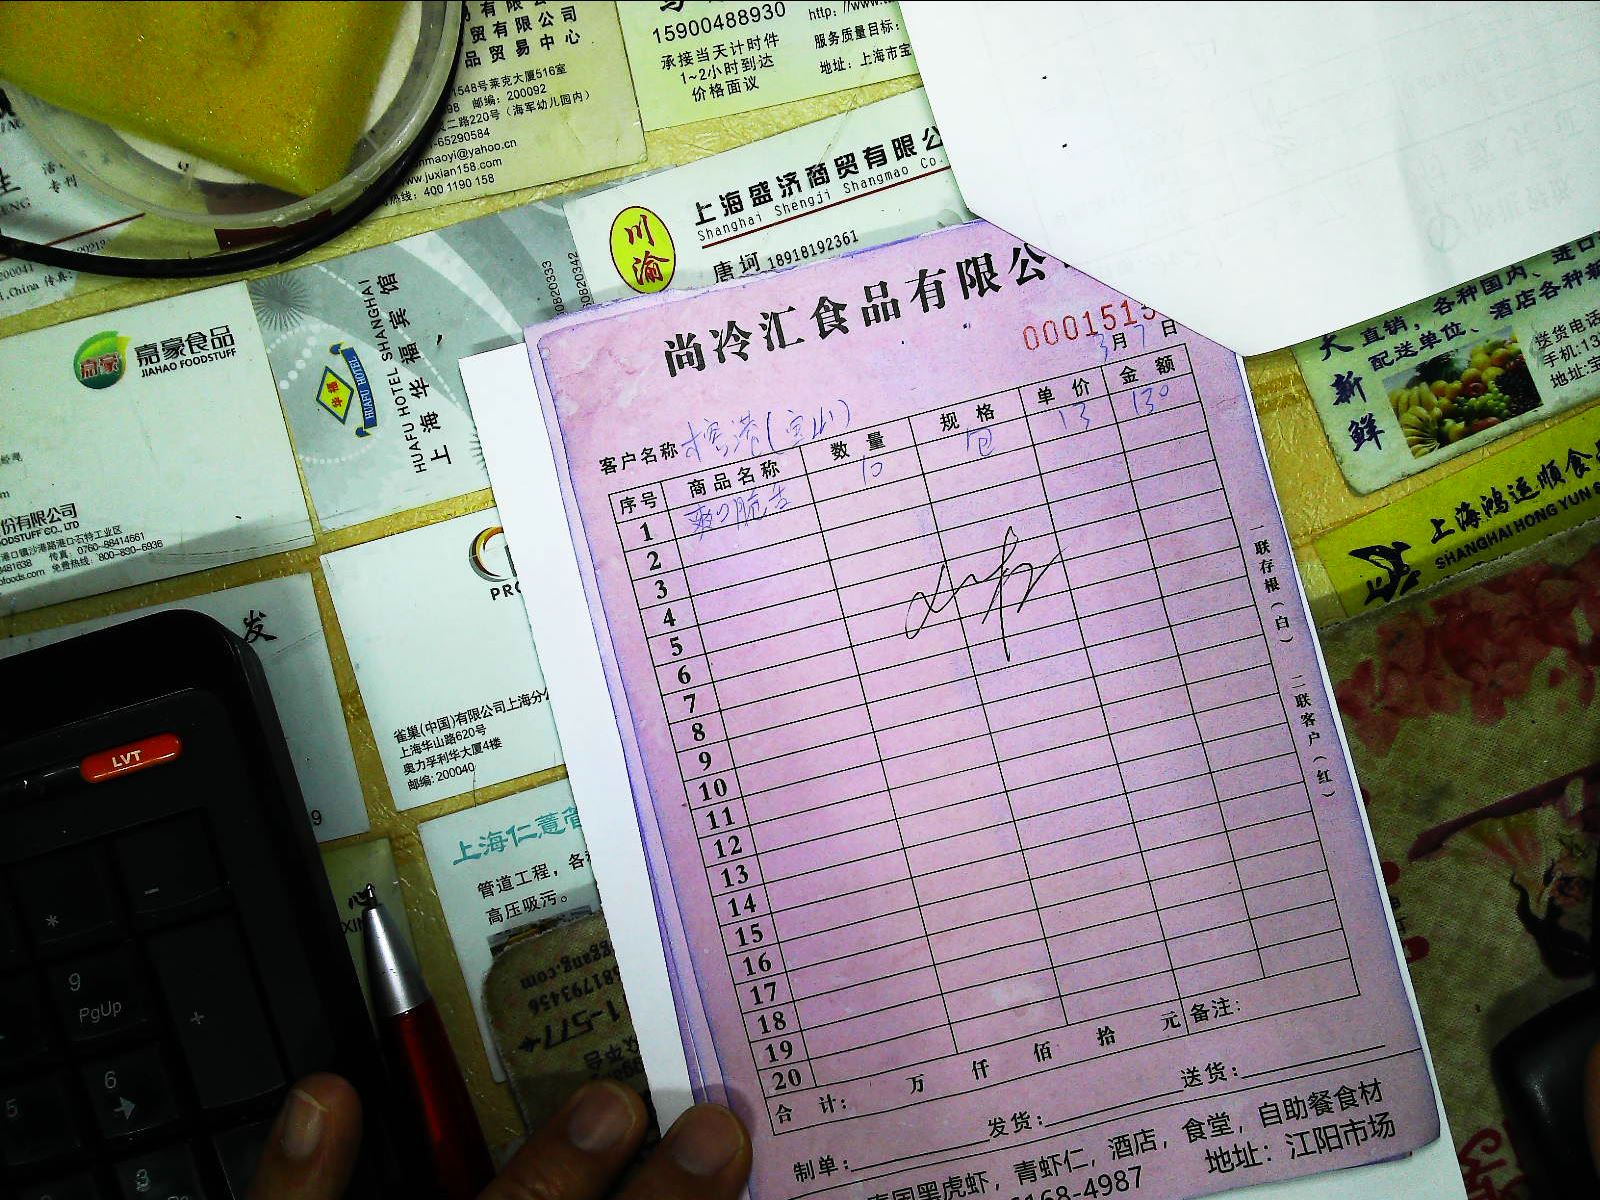 有限公司
贸有限公司
品贸易中心
1548号莱克大厦516室
98 邮编: 200092
二路220号 (海军幼儿园内)
-65290584
nmaoyi@yahoo.cn
www.juxian158.com
热线: 400 1190 158
15900488930
承接当天计时件
1~2小时到达
价格面议
http: //www.
服务质量目标:
地址: 上海市宝
川渝
上海盛济商贸有限公
Shanghai Shengji Shangmao Co.
唐珂 18918192361
嘉豪
嘉豪食品
JIAHAO FOODSTUFF
份有限公司
ODSTUFF CO., LTD
港口镇沙港路港口石特工业区
3481638 传真: 0760-88414661
oofoods.com 免费热线: 800-830-6936
华福
HUAFU HOTEL
HUAFU HOTEL SHANGHAI
上海华福宾馆
60820333
60820342
发
雀巢(中国)有限公司上海分公
上海华山路620号
奥力孚利华大厦4楼
邮编: 200040
上海仁薏管
管道工程, 各种
高压吸污。
大 直销, 各种国内、进口
配送单位、酒店各种新
新鲜
送货电话
手机:13
地址:宝
上海鸿运顺食品
SHANGHAI HONG YUN S
尚冷汇食品有限公
0001515
3月7日
客户名称 (宝山)
序号 商品名称 数量 规格 单价 金额
1 爽口脆 10 包 13 130
2
3
4
5
6
7
8
9
10
11
12
13
14
15
16
17
18
19
20
合计: 万 仟 佰 拾 元 备注:
制单: 发货: 送货:
泰国黑虎虾, 青虾仁, 酒店, 食堂, 自助餐食材
6168-4987 地址: 江阳市场
一联存根(白) 二联客户(红)
LVT
9
PgUp
*
-
+
6
5
3